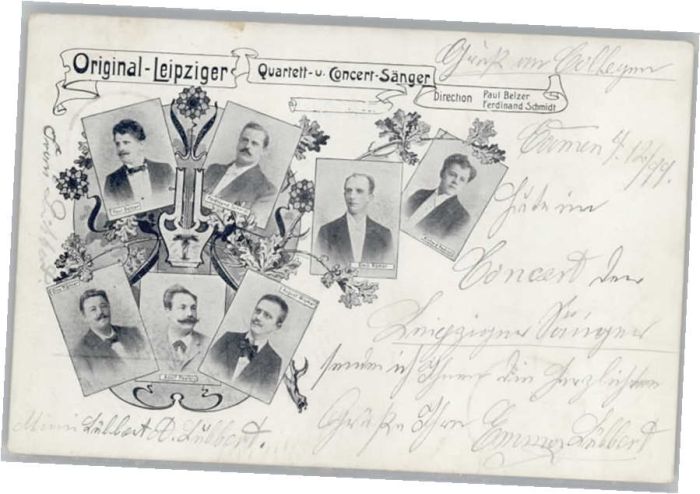 Original-Leipziger
Quartett- u. Concert-Sänger
Direction Paul Belzer
Ferdinand Schmidt
Gruß an Collegen
Barmen 4.12/99.
im
Concert der
Leipziger Sänger
sende ich Ihnen die herzlichsten
Grüße Ihre Emma Lübbert
Mimi Lübbert A. Lübbert.